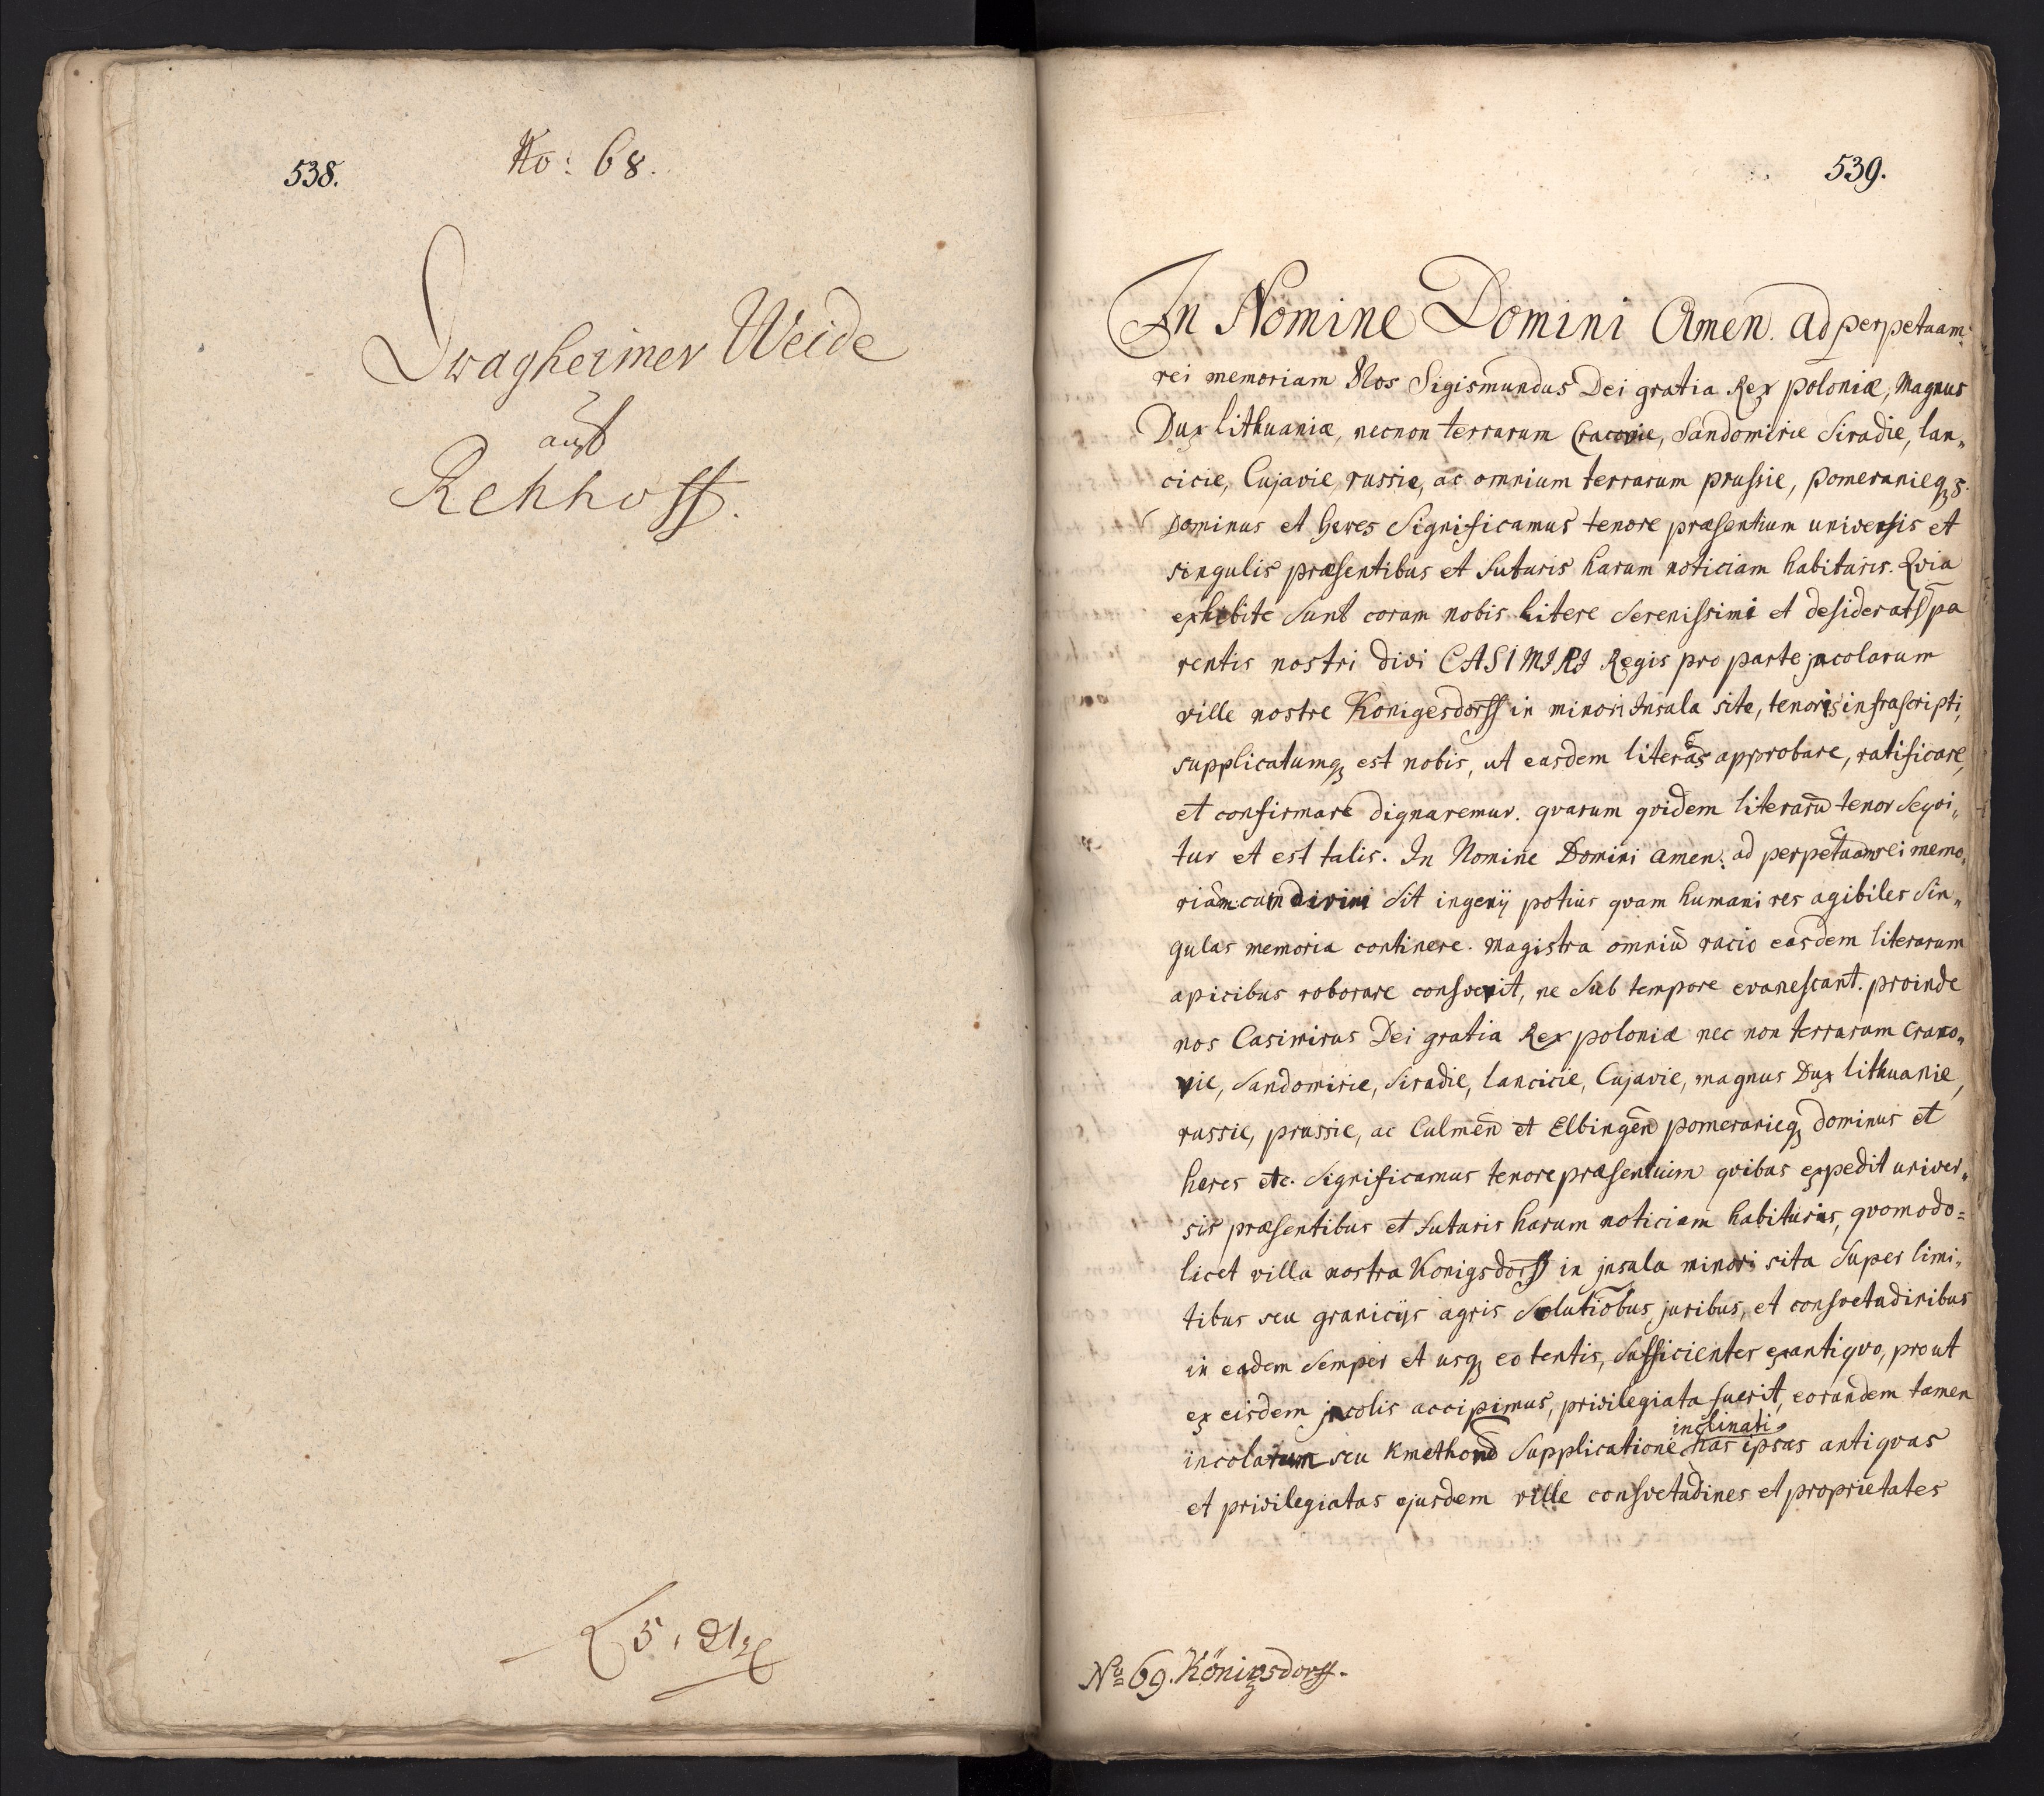 538.
No: 68.
Dwagheimer Weide
auß
Rehhoff.
539.
In Nomine Domini Amen. ad perpetuam
rei memoriam Nos Sigismundus Dei gratia Rex poloniæ, Magnus
Dux lithuaniæ, necnon terrarum Cracovie, Sandomirie Siradie, lan„
cicie, Cujavie, russie, ac omnium terrarum prussie, pomeranieqz
Dominus et heres Significamus tenore præsentium universis et
singulis præsentibus et futuris harum noticiam habituris. Qvia
exhibite sunt coram nobis litere Serenissimi et desideratss pa
rentis nostri divi CASIMIRI Regis pro parte jncolarum
ville nostre Konigesdorff in minori Insula site, tenoris infrascripti,
supplicatumqz est nobis, ut easdem literas approbare, ratificare,
et confirmare dignaremur. qvarum qvidem literarū tenor Seqvi„
tur et est talis. In Nomine Domini amen: ad perpetuam rei memo„
riam: cum divini Sit ingenij potius qvam humani res agibiles Sin„
gulas memoria continere. magistra omniū racio easdem literarum
apicibus roborare consvevit, ne Sub tempore evanescant. proinde
nos Casimirus Dei gratia Rex poloniæ nec non terrarum Craco„
vie, Sandomirie, Siradie, lancicie, Cujavie, magnus Dux lithuanie,
russie, prussie, ac Culmen̄ et Elbingen̄ pomeranieqz dominus et
heres etc. Significamus tenore præsentium qvibus expedit univer„
sis præsentibus et futuris harum noticiam habituris, qvomodo=
licet villa nostra Konigsdorff in jnsula minori sita Super limi„
tibus seu granicijs agris Solutiōbus, juribus, et consvetudinibus
in eadem Semper et usqz eo tentis, Sufficienter ex antiqvo, prout
ex eisdem jncolis accipimus, privilegiata fuerit, eorundem tamen
incolarum seu Kmethonū Supplicatione inclinati has ipsas antiqvas
et privilegiatas ejusdem ville consvetudines et proprietates
No 69. Königsdorff.